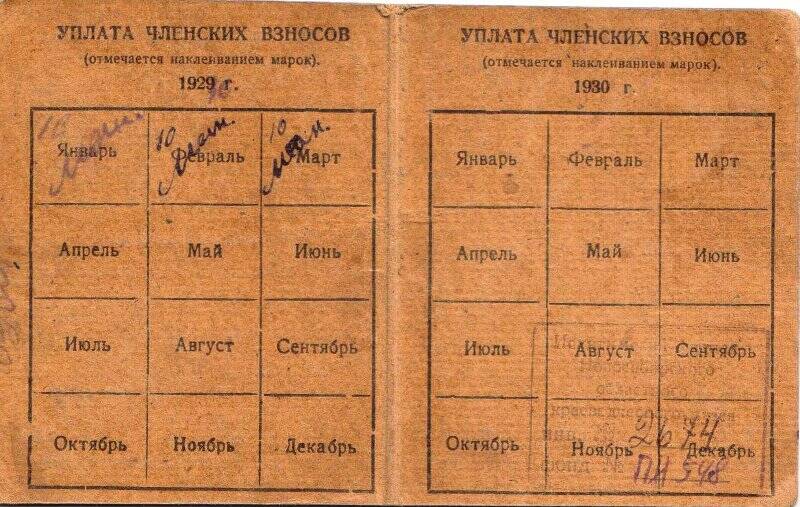 УПЛАТА ЧЛЕНСКИХ ВЗНОСОВ
(отмечается наклеиванием марок).
1929 г.
10 10 10
Январь Февраль Март
Апрель Май Июнь
Июль Август Сентябрь
Октябрь Ноябрь Декабрь
УПЛАТА ЧЛЕНСКИХ ВЗНОСОВ
(отмечается наклеиванием марок).
1930 г.
Январь Февраль Март
Апрель Май Июнь
Июль Август Сентябрь
областного
2674
Октябрь Ноябрь Декабрь
ПИ 548